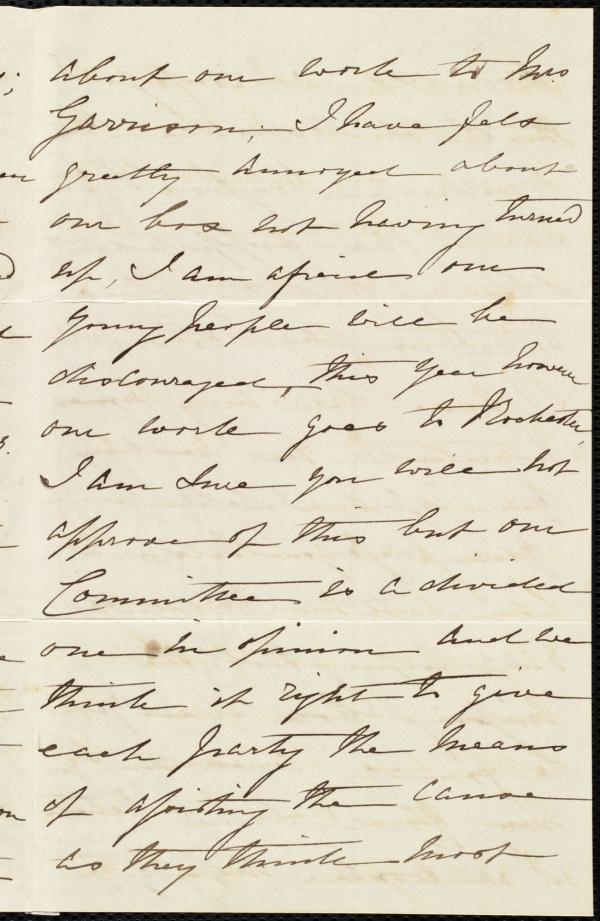 about our work to Mrs.
Garrison; I have felt
greatly annoyed about
our box not having turned
up, I am afraid our
young people will be
discouraged, this year however
our work goes to Rochester,
I am sure you will not
approve of this but our
Committee is a divided
one in opinion and we
think it right to give
each party the means
of assisting the cause
as they think most